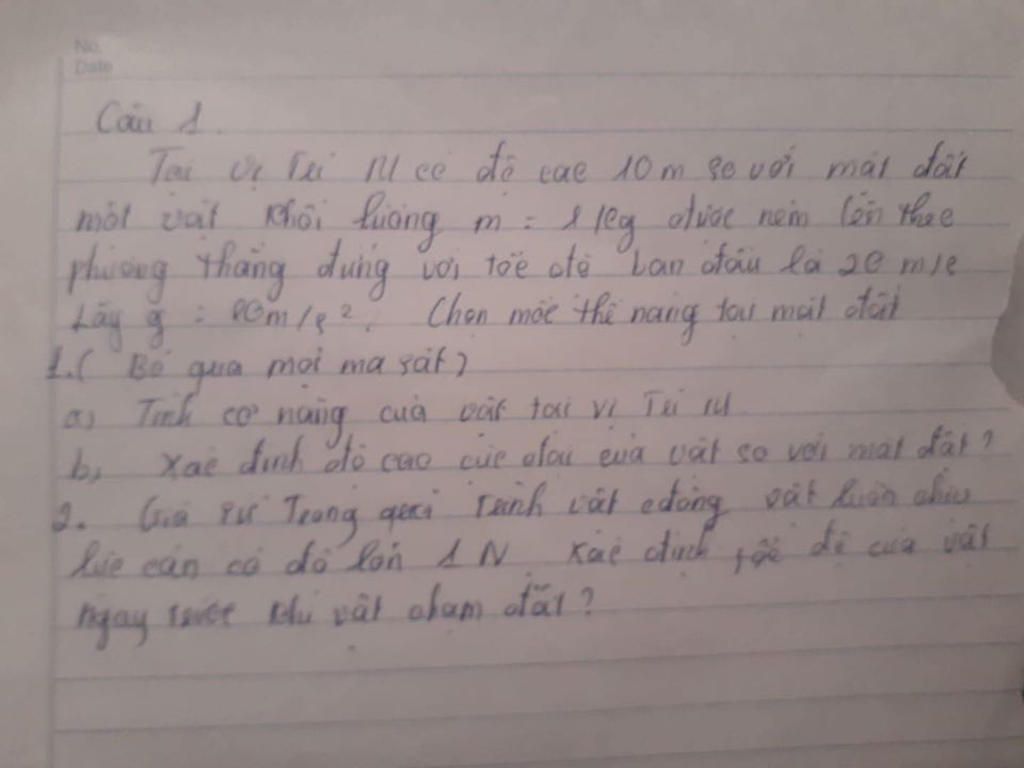 No.
Date
Câu 1.
Tại vị trí M có độ cao 10 m so với mặt đất
một vật khối lượng m = 1 kg được ném lên theo
phương thẳng đứng với tốc độ ban đầu là 20 m/s
Lấy g = 10m/s². Chọn mốc thế năng tại mặt đất
1. ( Bỏ qua mọi ma sát)
a) Tính cơ năng của vật tại vị trí M
b, Xác định độ cao cực đại của vật so với mặt đất?
2. Giả sử trong quá trình vật cđộng vật luôn chịu
lực cản có độ lớn 1 N Xác định tốc độ của vật
ngay trước khi vật chạm đất?